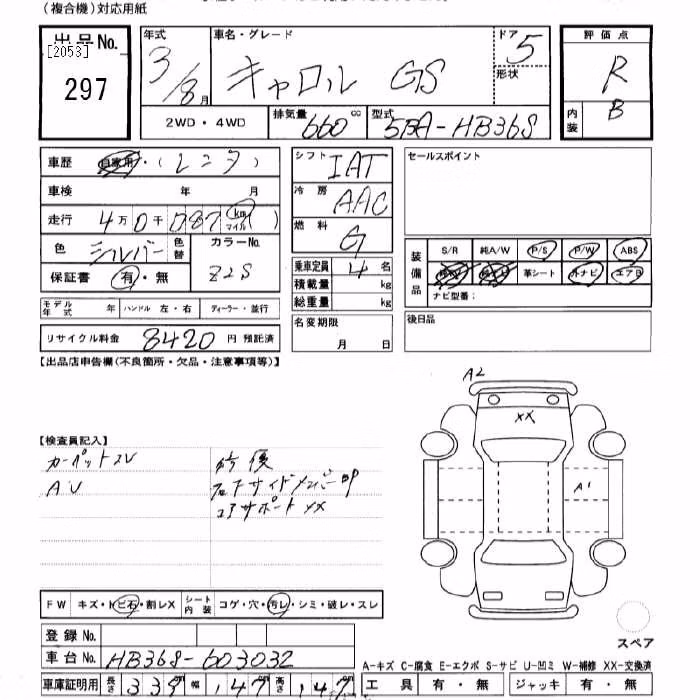 (複合機)対応用紙
出品No.
[2053]
297
年式
3/8月
車名・グレード
キャロル GS
ドア
5
形状
2WD・4WD
排気量
660 cc
型式
5BA-HB36S
評価点
R
内装
B
車歴
自家用・(レンタ)
車検 年 月
走行 4万0千087 km マイル
色 シルバー
色替
カラーNo.
Z2S
保証書 有・無
モデル年式 年 ハンドル 左・右 ディーラー・並行
リサイクル料金 8420 円 預託済
シフト IAT
冷房 AAC
燃料 G
乗車定員 4 名
積載量 kg
総重量 kg
名変期限
月 日
セールスポイント
装備品
S/R 純A/W P/S P/W ABS
革シート 外ナビ エアB
ナビ型番:
後日品
【出品店申告欄(不良箇所・欠品・注意事項等)】
【検査員記入】
カーペットスV
AU
右下サイドメンバー凹
コアサポートXX
A2
XX
A1
FW キズ・トビ石・割レX シート内装 コゲ・穴・汚レ・シミ・破レ・スレ
登録No.
車台No. HB36S-603032
車庫証明用 長さ 339 幅 147 高さ 147
スペア
A-キズ C-腐食 E-エクボ S-サビ U-凹ミ W-補修 XX-交換済
工具 有・無 ジャッキ 有・無